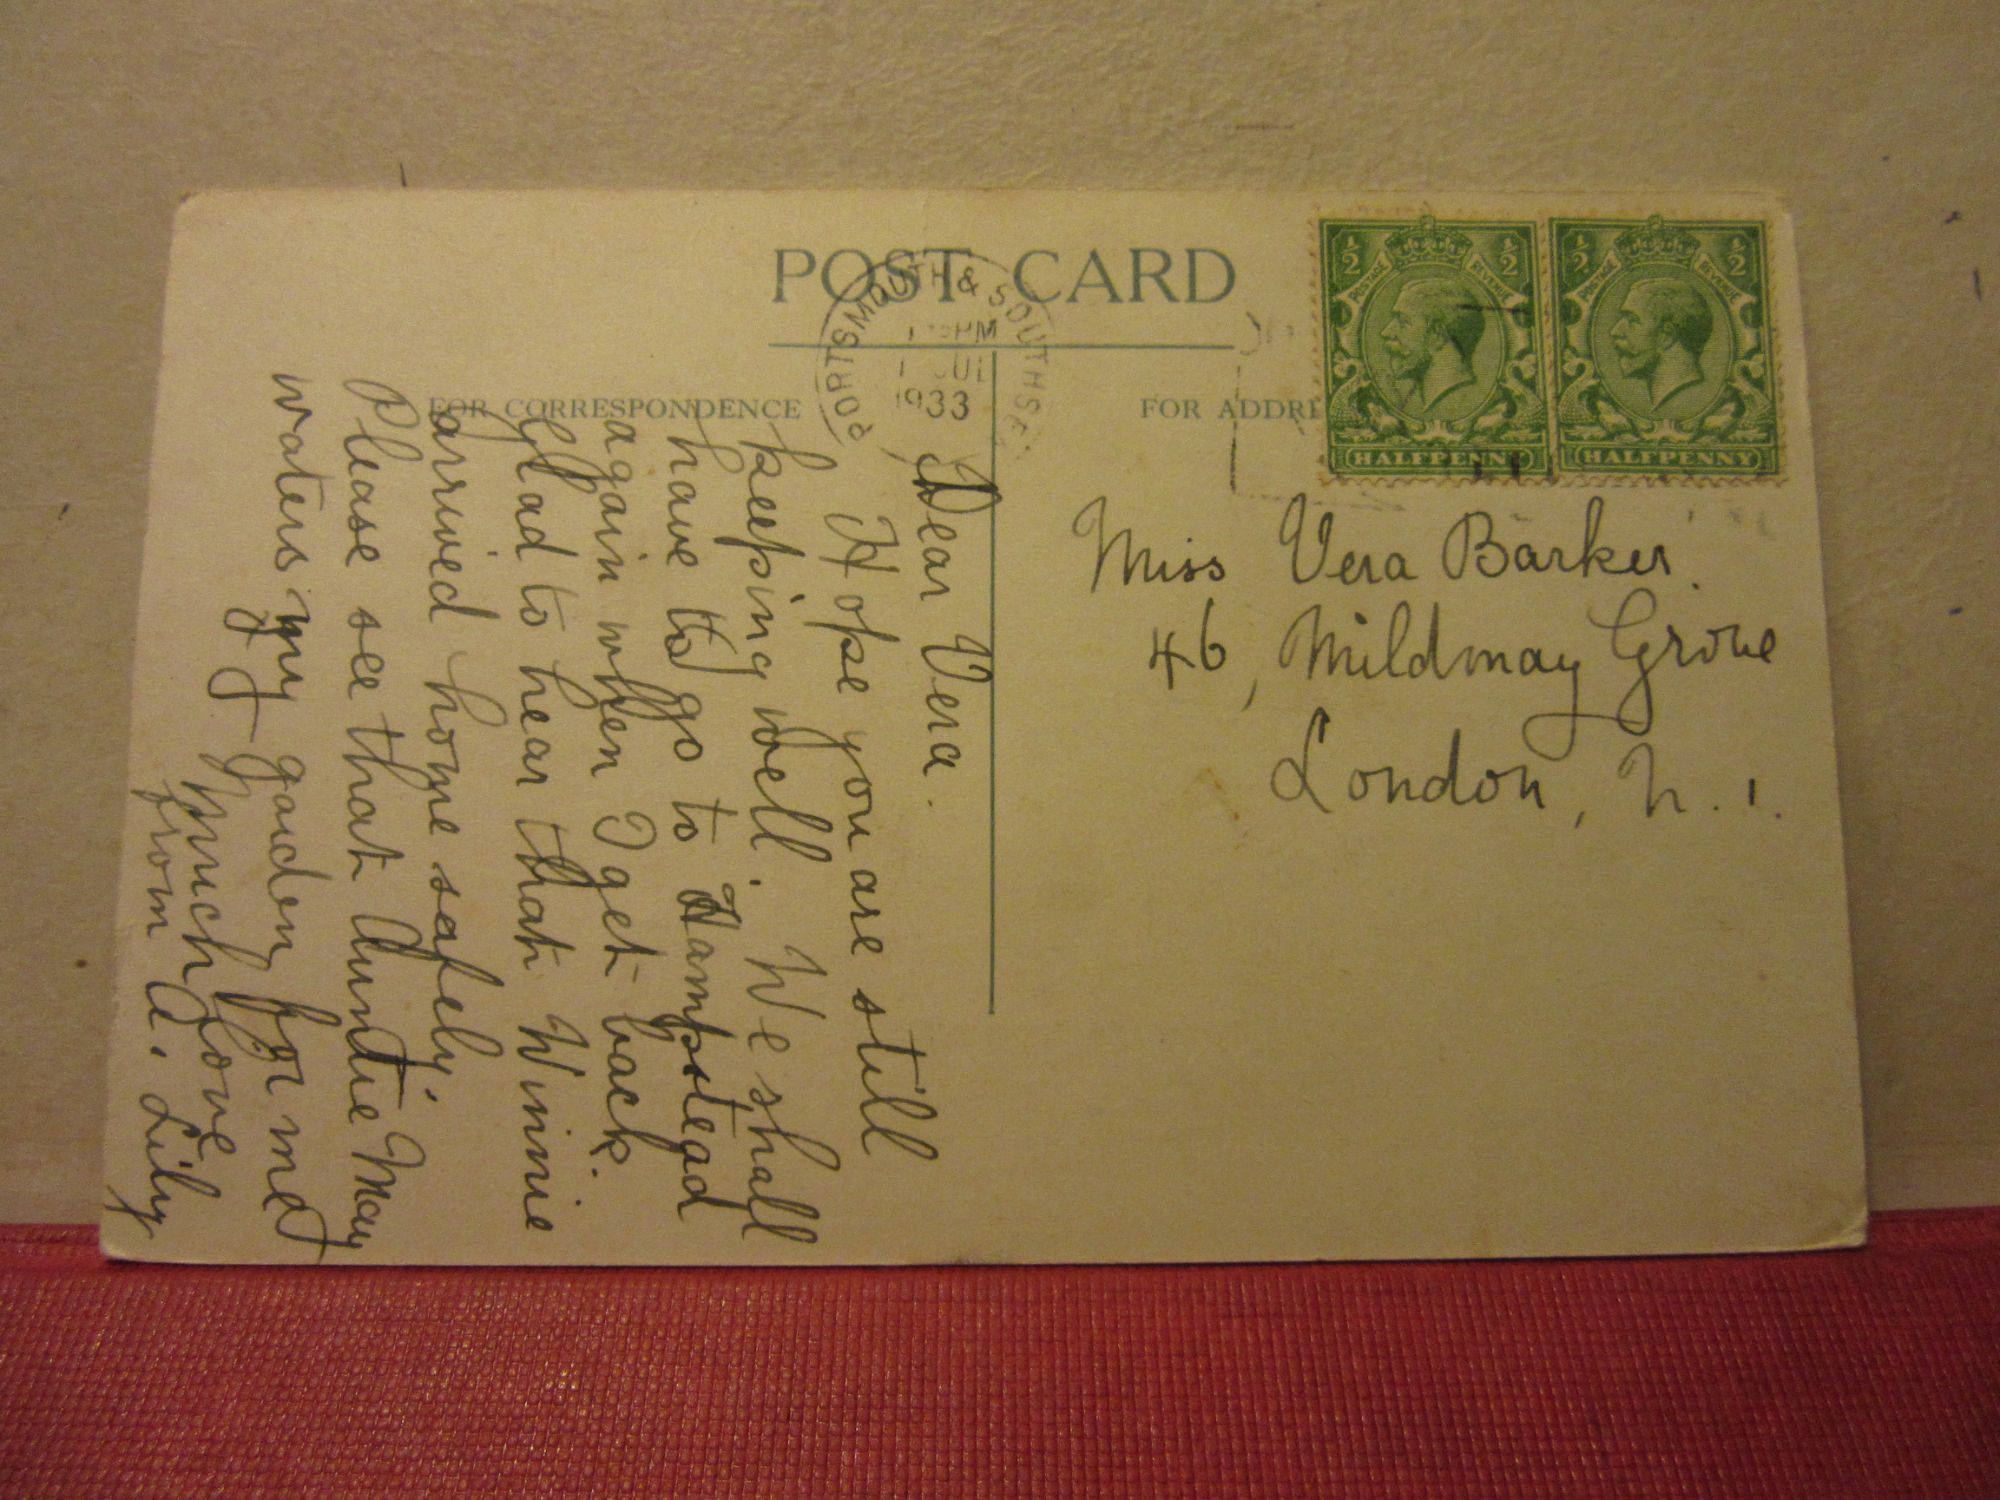 POST CARD
PORTSMOUTH & SOUTHSE
PM
JUL
1933
FOR CORRESPONDENCE
FOR ADDRE
½ ½
POSTAGE REVENUE
HALFPENNY
½ ½
POSTAGE REVENUE
HALFPENNY
Miss Vera Barker.
46, Mildmay Grove
London, N. 1.
Dear Vera.
Hope you are still
keeping well. We shall
have to go to Hampstead
again when I get back.
Glad to hear that Winnie
arrived home safely.
Please see that Auntie May
waters my garden for me
Much love
from A. Lily